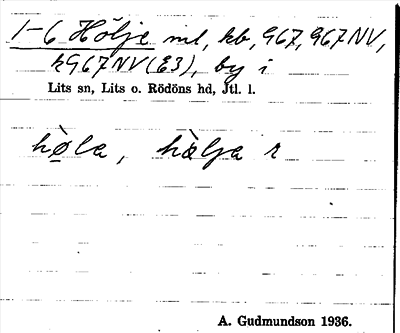 1-6 Hölje ml, kb, 967, 967NV,
k967NV(E3), by i
Lits sn, Lits o. Rödöns hd, Jtl. l.
hø̀la, hàlja r
A. Gudmundson 1936.